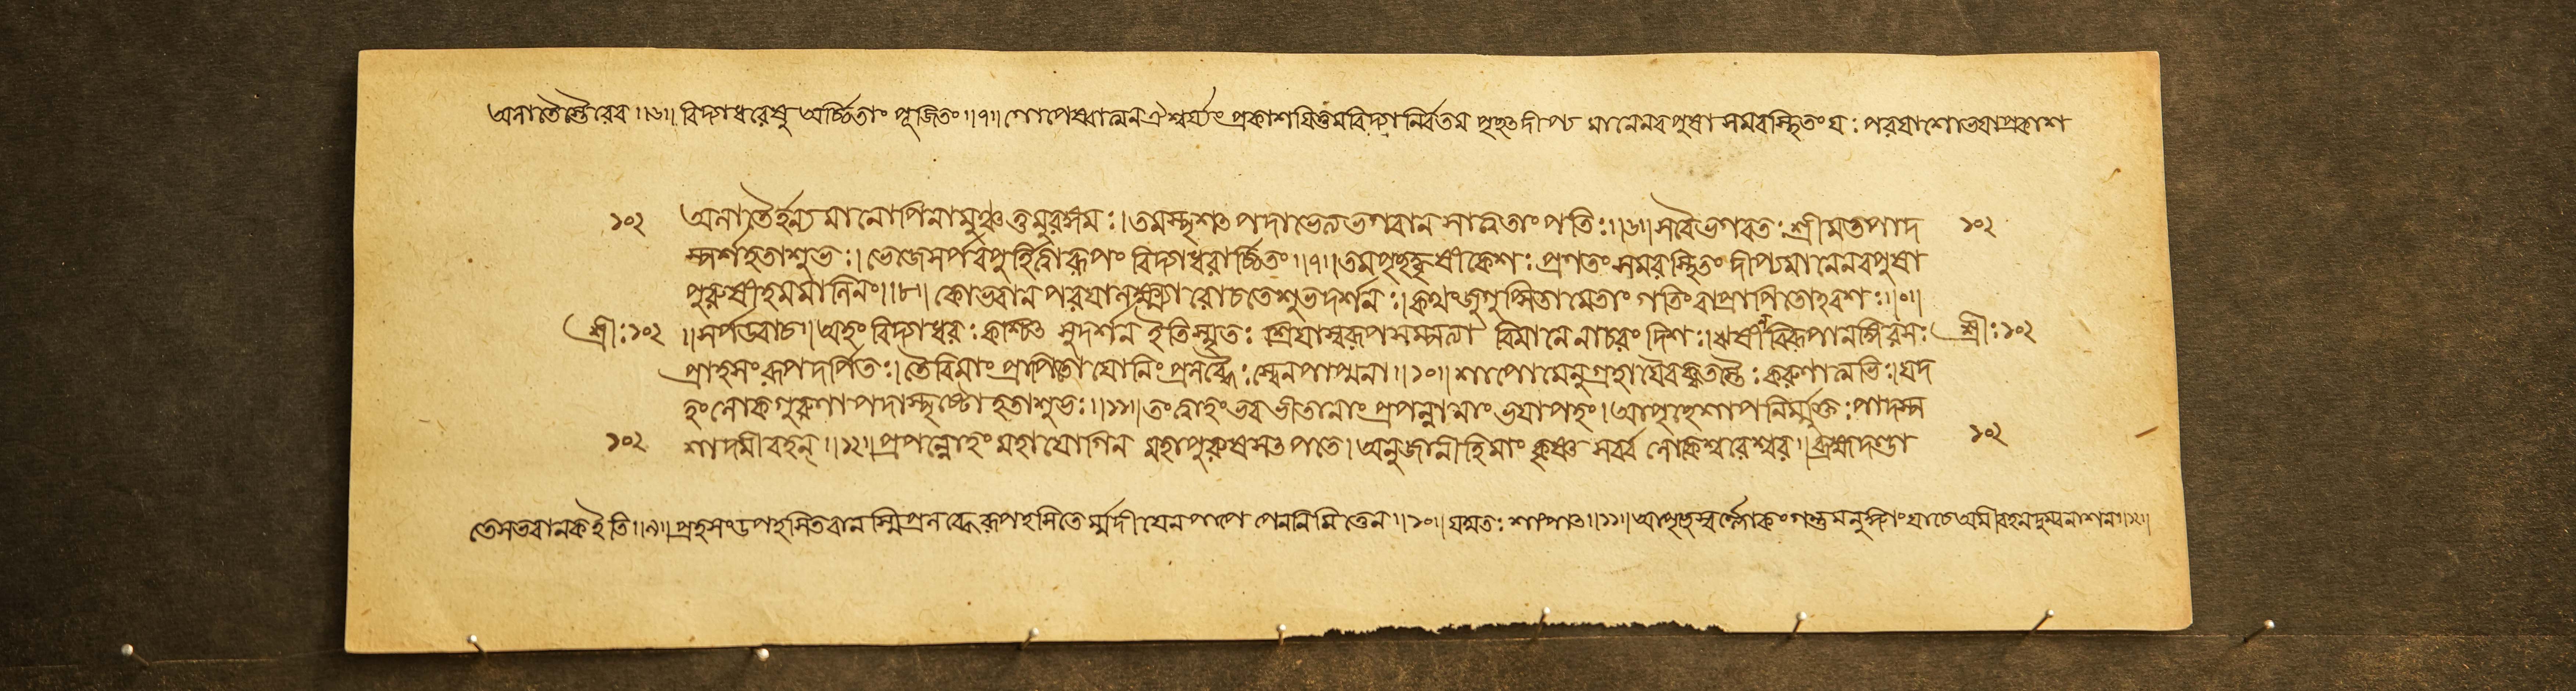 অনাতৈস্তৈরেব ॥৬॥ বিদ্যাধরেষু অর্চ্চিতাং পূজিতং ॥৭॥ গোপেষ্বাত্মন ঐশ্বর্য্যং প্রকাশযিতুম বিদ্যানির্বতম পৃছ্ৎ দীপ্য মানেনবপুষা সমবস্থিতং য : পরযাশোভযাপ্রকাশ
১০২ অনাতৈর্হন্য মানোপিনামুঞ্চ ত্তমুরঙ্গম : । তমস্পৃশৎ পদাভ্যেত্য ভগবান সাত্বতাং পতি : ॥৬॥ সবৈভগবত : শ্রীমত্তপাদ ১০২
স্পর্শহতাশুভ : । ভেজেসর্পবপুর্হিত্বা রূপং বিদ্যাধরার্চ্চিতং ॥৭॥ তমপৃছদ্ধৃষীকেশ : প্রণতং সমবস্থিতং দীপ্যমানেনবপুষা
পুরুষংহেমমালিনং ॥৮॥ কোভবান পরযালক্ষ্ম্যা রোচতেশুভদর্শন : । কথংজুগুপ্সিতামেতাং গতিংবাপ্রাপিতোহবশ : ॥৯॥
শ্রী : ১০২ ॥ সর্পউবাচ ॥ অহং বিদ্যাধর : কশ্চিৎ সুদর্শন ইতিস্মৃত : শ্রিযাস্বরূপসম্পত্যা বিমানেনাচরং দিশ : । ঋষীন্বিরূপানঙ্গিরস : শ্রী : ১০২
প্রাহসংরূপদর্পিত : । তৈরিমাং প্রাপিতো যোনিং প্রলব্ধৈ : স্বেনপাপ্মনা ॥১০॥ শাপোমেনুগ্রহাযৈবকৃতস্তৈ : করুণাত্মভি : । যদ
হং লোকগুরুণা পদাস্পৃষ্টো হতাশুভ : ॥১১॥ তং ত্বাহং ভব ভীতানাং প্রপন্নানাং ভযাপহং । আপৃছেশাপনির্ম্মুক্ত : পাদস্প
১০২ র্শাদমীবহন্ ॥১২॥ প্রপন্নোহং মহাযোগিন মহাপুরুষসৎপতে । অনুজানীহিমাং কৃষ্ণ সর্ব্ব লোকেশ্বরেশ্বর । ব্রহ্মদণ্ডা ১০২
তেসভবানক ইতি ॥৯॥ প্রহসং উপহসিতবানস্মি প্রলব্ধৈরূপহসিতৈর্ম্মদীযেনপাপেনিমিত্তেন ॥১০॥ যন্মত : শাপাৎ ॥১১॥ আপৃছেস্বর্লোকং গন্তুমনুজ্ঞাং যাচে অমীবহনদুঃখনাশন ॥১২॥